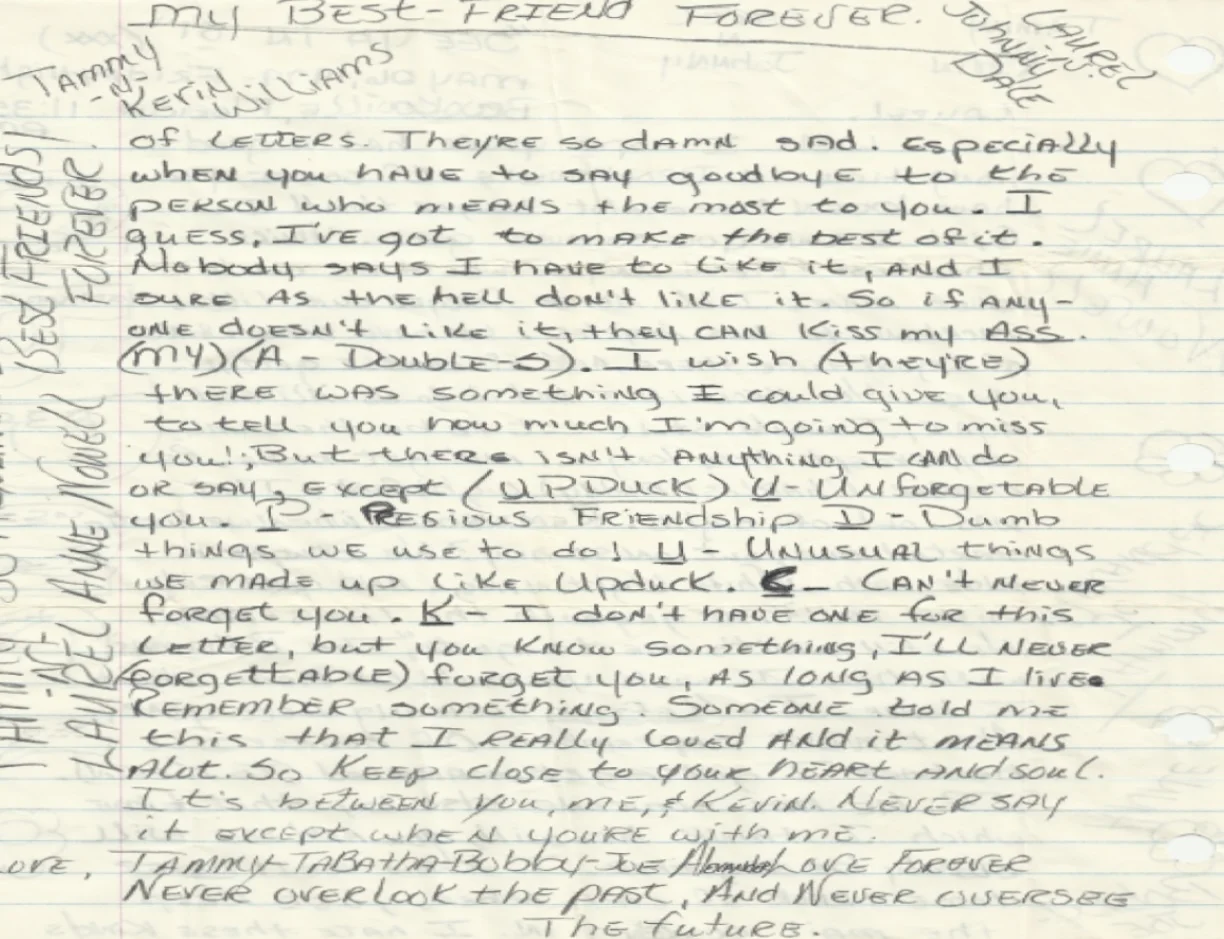 My Best-Friend Forever.
Tammy
-N-
Kevin Williams
Laurel
Johnny
Dale
of Letters. They're so damn sad. especially
when you have to say goodbye to the
person who means the most to you. I
guess, I've got to make the best of it.
Nobody says I have to like it, and I
sure as the hell don't like it. So if any-
one doesn't like it, they can kiss my Ass.
(my)(A - Double-s). I wish (they're)
there was something I could give you,
to tell you how much I'm going to miss
you!; But there isn't anything I can do
or say, except (UPDuck) U-Unforgetable
you. P - Presious Friendship D - Dumb
things we use to do! U - Unusual things
we made up like Upduck. C - Can't never
forget you. K - I don't have one for this
Letter, but you know something, I'll never
(forgettable) forget you, as long as I live.
Remember something. Someone told me
this that I really loved and it means
Alot. So keep close to your heart and soul.
It's between you, me, & Kevin. Never say
it except when you're with me.
ove, Tammy-Tabatha-Bobby-Joe Love Forever
Never overlook the past, And Never oversee
The future.
Best Friends
Forever
-N-
Laurel Anne Nowell